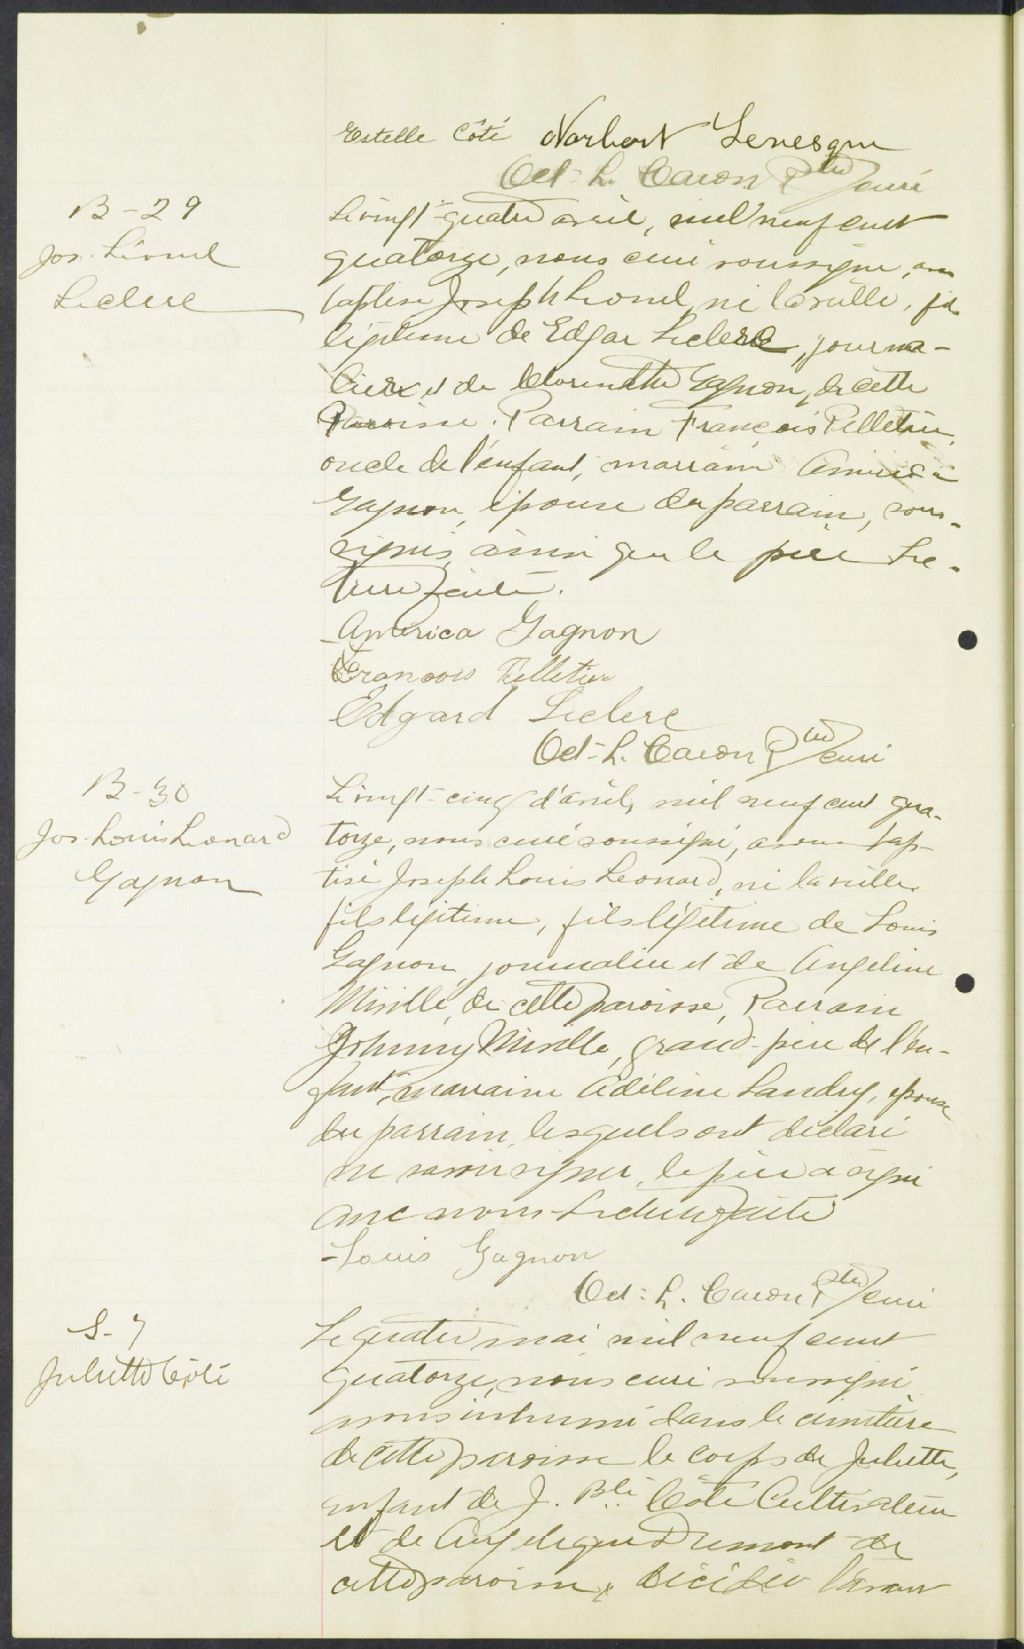 Estelle Côté Norbert Levesque
Oct. L. Caron Ptre curé
B-29
Jos. Lionel
Leclerc
Le vingt-quatre avril, mil neuf cent
quatorze, nous curé soussigné, avons
baptisé Joseph Lionel, né la veille, fils
légitime de Edgar Leclerc, journa-
lier et de Gagnon, de cette
Paroisse. Parrain François Pelletier,
oncle de l'enfant, marraine America
Gagnon, épouse du parrain, sous-
signés, ainsi que le père. Lec-
ture faite.
America Gagnon
Francois Pelletier
Edgard Leclerc
Oct. L. Caron Ptre curé
B-30
Jos. Louis Leonard
Gagnon
Le vingt-cinq d'avril, mil neuf cent qua-
torze, nous curé soussigné, avons bap-
tisé Joseph Louis Leonard, né la veille,
fils légitime, fils légitime de Louis
Gagnon, journalier et de Angeline
Miville, de cette paroisse, Parrain
Johnny Miville, grand-père de l'en-
fant, marraine Adéline Landry, épouse
du parrain, lesquels ont déclaré
ne savoir signer, le père a signé
avec nous. Lecture faite
Louis Gagnon
Oct. L. Caron Ptre curé
S-7
Juliette Côté
Le quatre mai mil neuf cent
quatorze, nous curé soussigné
avons inhumé dans le cimetière
de cette paroisse le corps de Juliette,
enfant de J. Bte Côté Cultivateur
et de Angelique Dumont de
cette paroisse, décédée l'avant